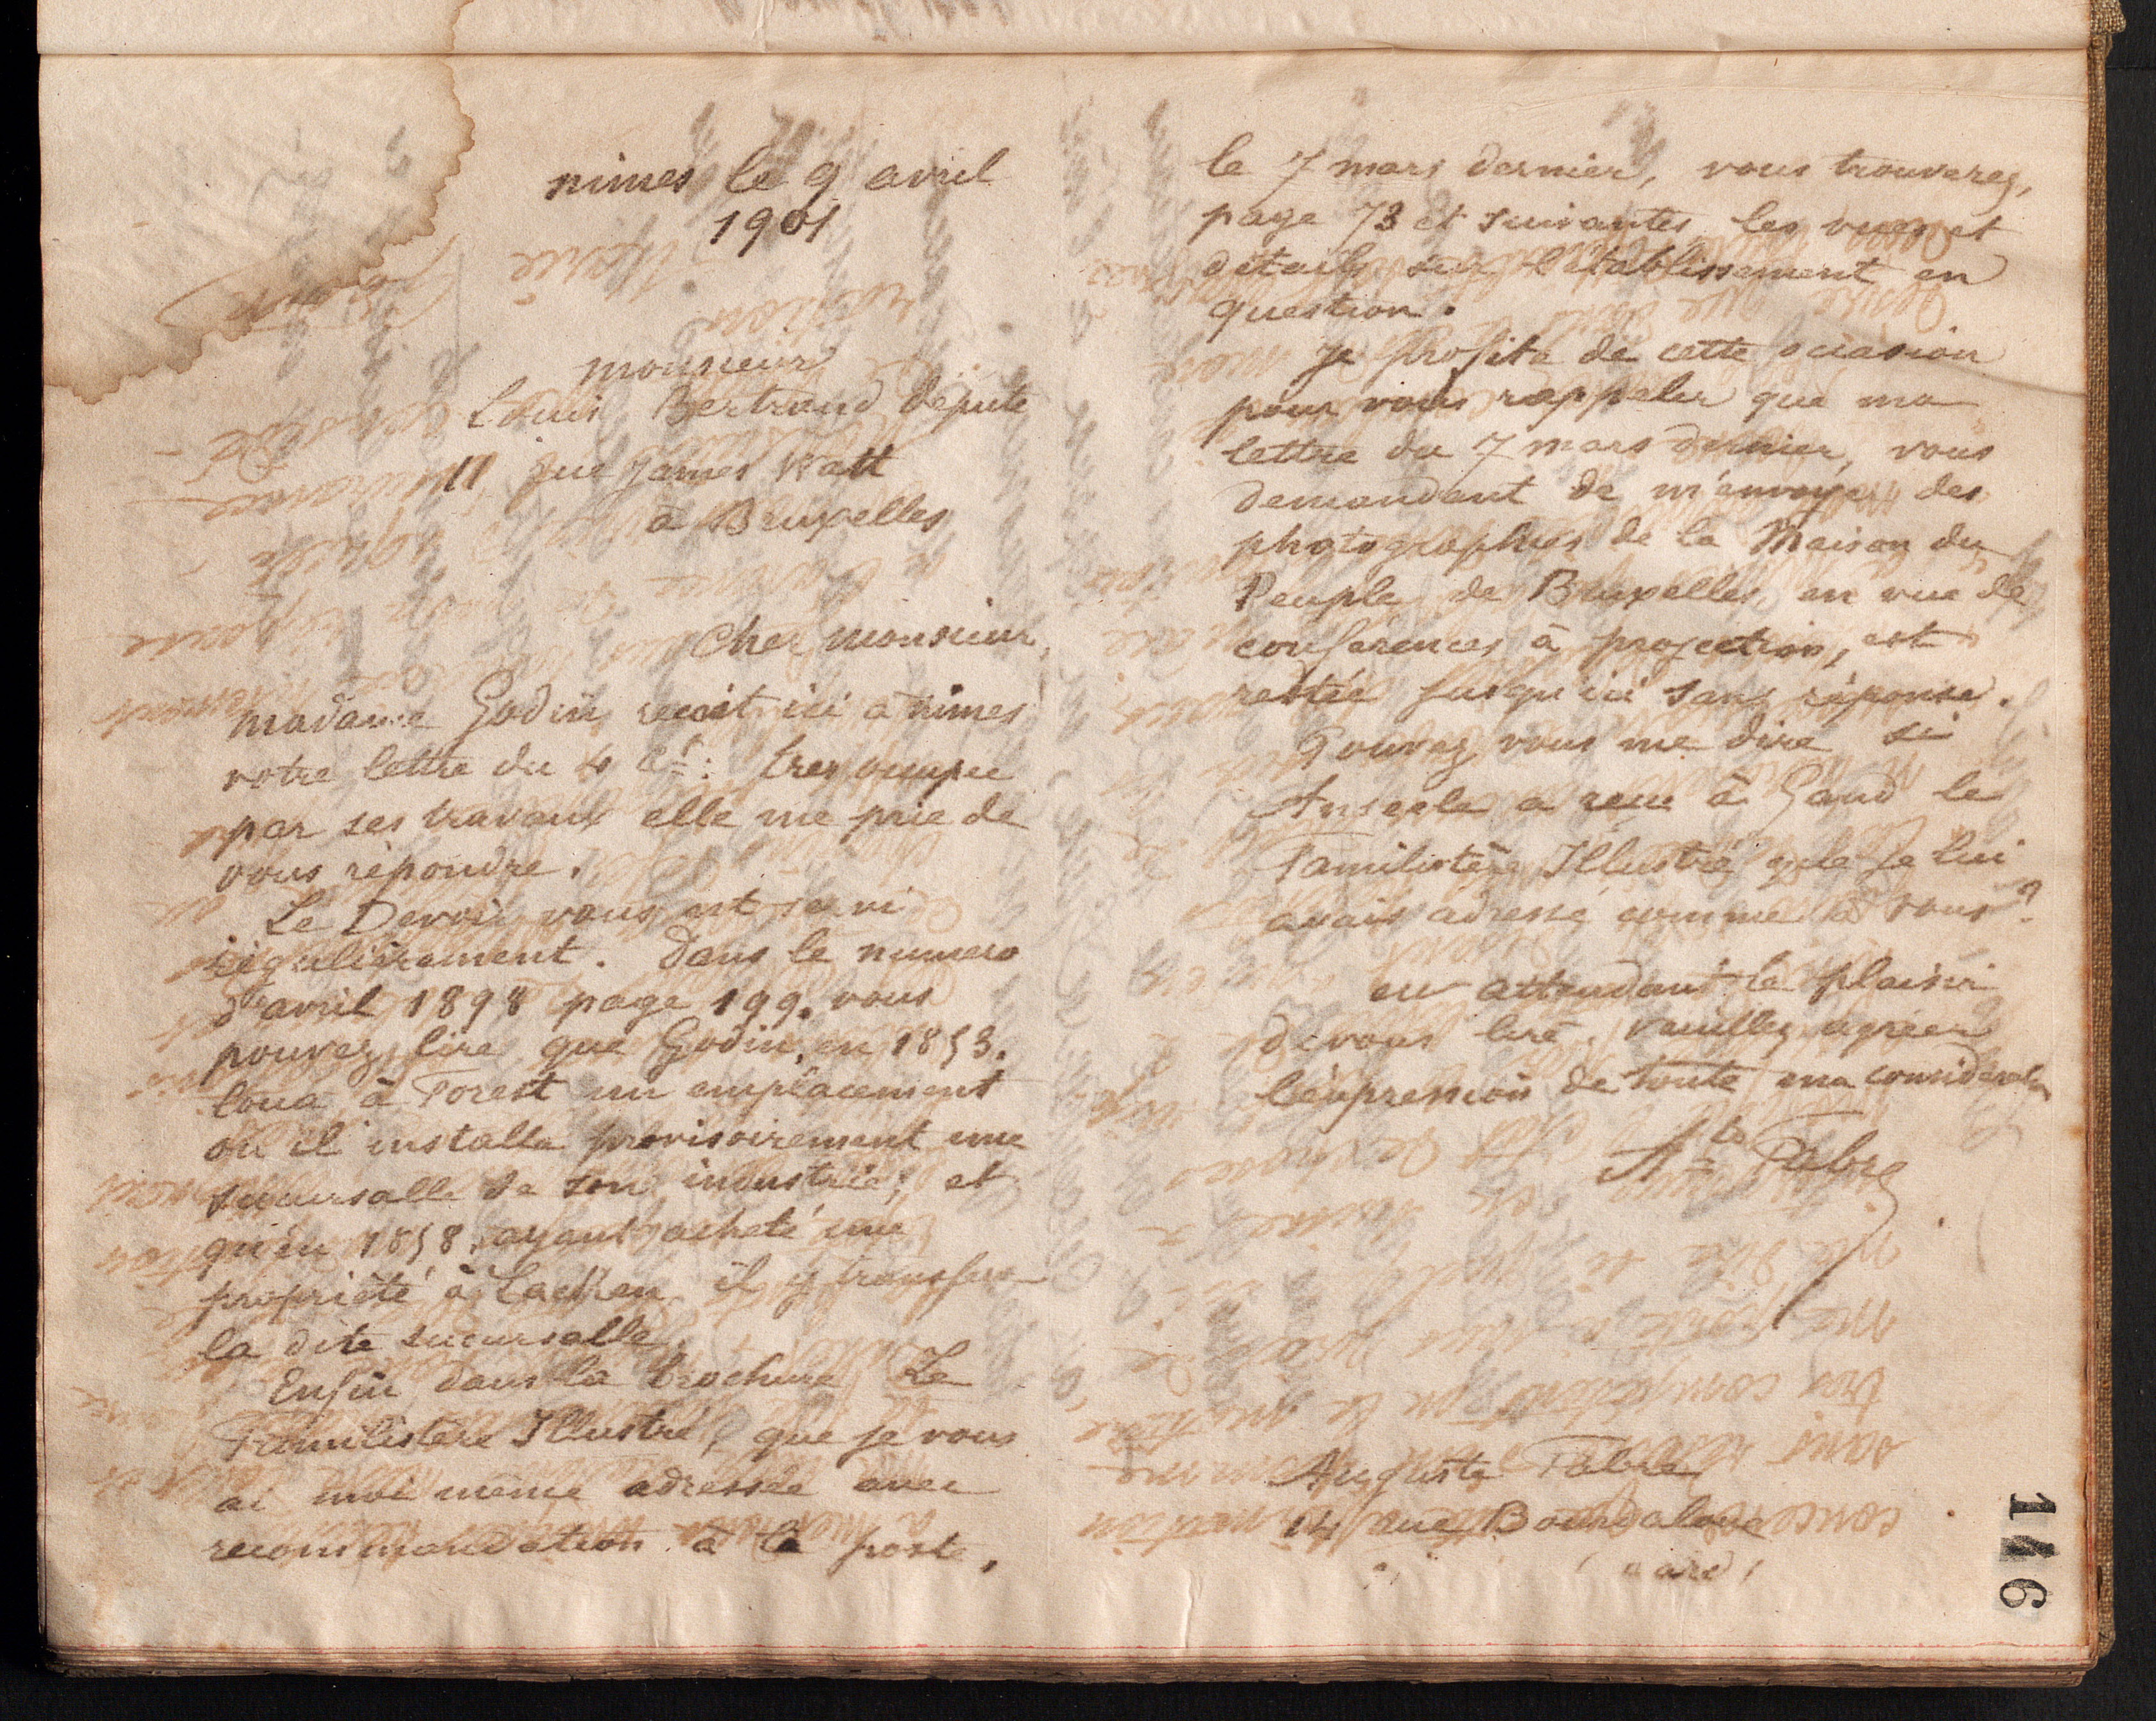 nimes le 9 avril
1901
monsieur
Louis Bertrand député
11 rue James Watt
à Bruxelles
Cher monsieur,
madame Godin recoit ici a nimes
votre lettre du 4 ct: tres occupée
par ses travaux elle me prie de
vous répondre.
Le Devoir vous est servi
régulièrement. Dans le numero
d'avril 1898 page 199. vous
pouvez lire que Godin, en 1853.
loua à Forest un emplacement
où il installa provisoirement une
sucursalle de son industrie; et
qu'en 1858, ayant acheté une
propriété à Laeken il y transfera
la dite sucursalle.
Enfin dans la brochure Le
Familistère Illustré, que je vous
ai moi même adressée avec
recommandation à la poste,
le 7 mars dernier, vous trouverez,
page 73 et suivantes, les vues et
détails sur l'établissement en
question.
Je profite de cette occasion
pour vous rappeler que ma
lettre du 7 mars dernier, vous
demandant de m'envoyer des
photographies de la Maison du
Peuple de Bruxelles, en vue de
conférences à projection, est
restée jusqu'ici sans réponse.
Pouvez vous me dire si
Anseele a recu à Gand le
Familistère Illustré que je lui
avais adressé comme à vous?
en attendant le plaisir
de vous lire, veuillez agréer
l'expression de toute ma considération
Ate Fabre
Auguste Fabre
14 rue Bourdaloue
(Gard)
146